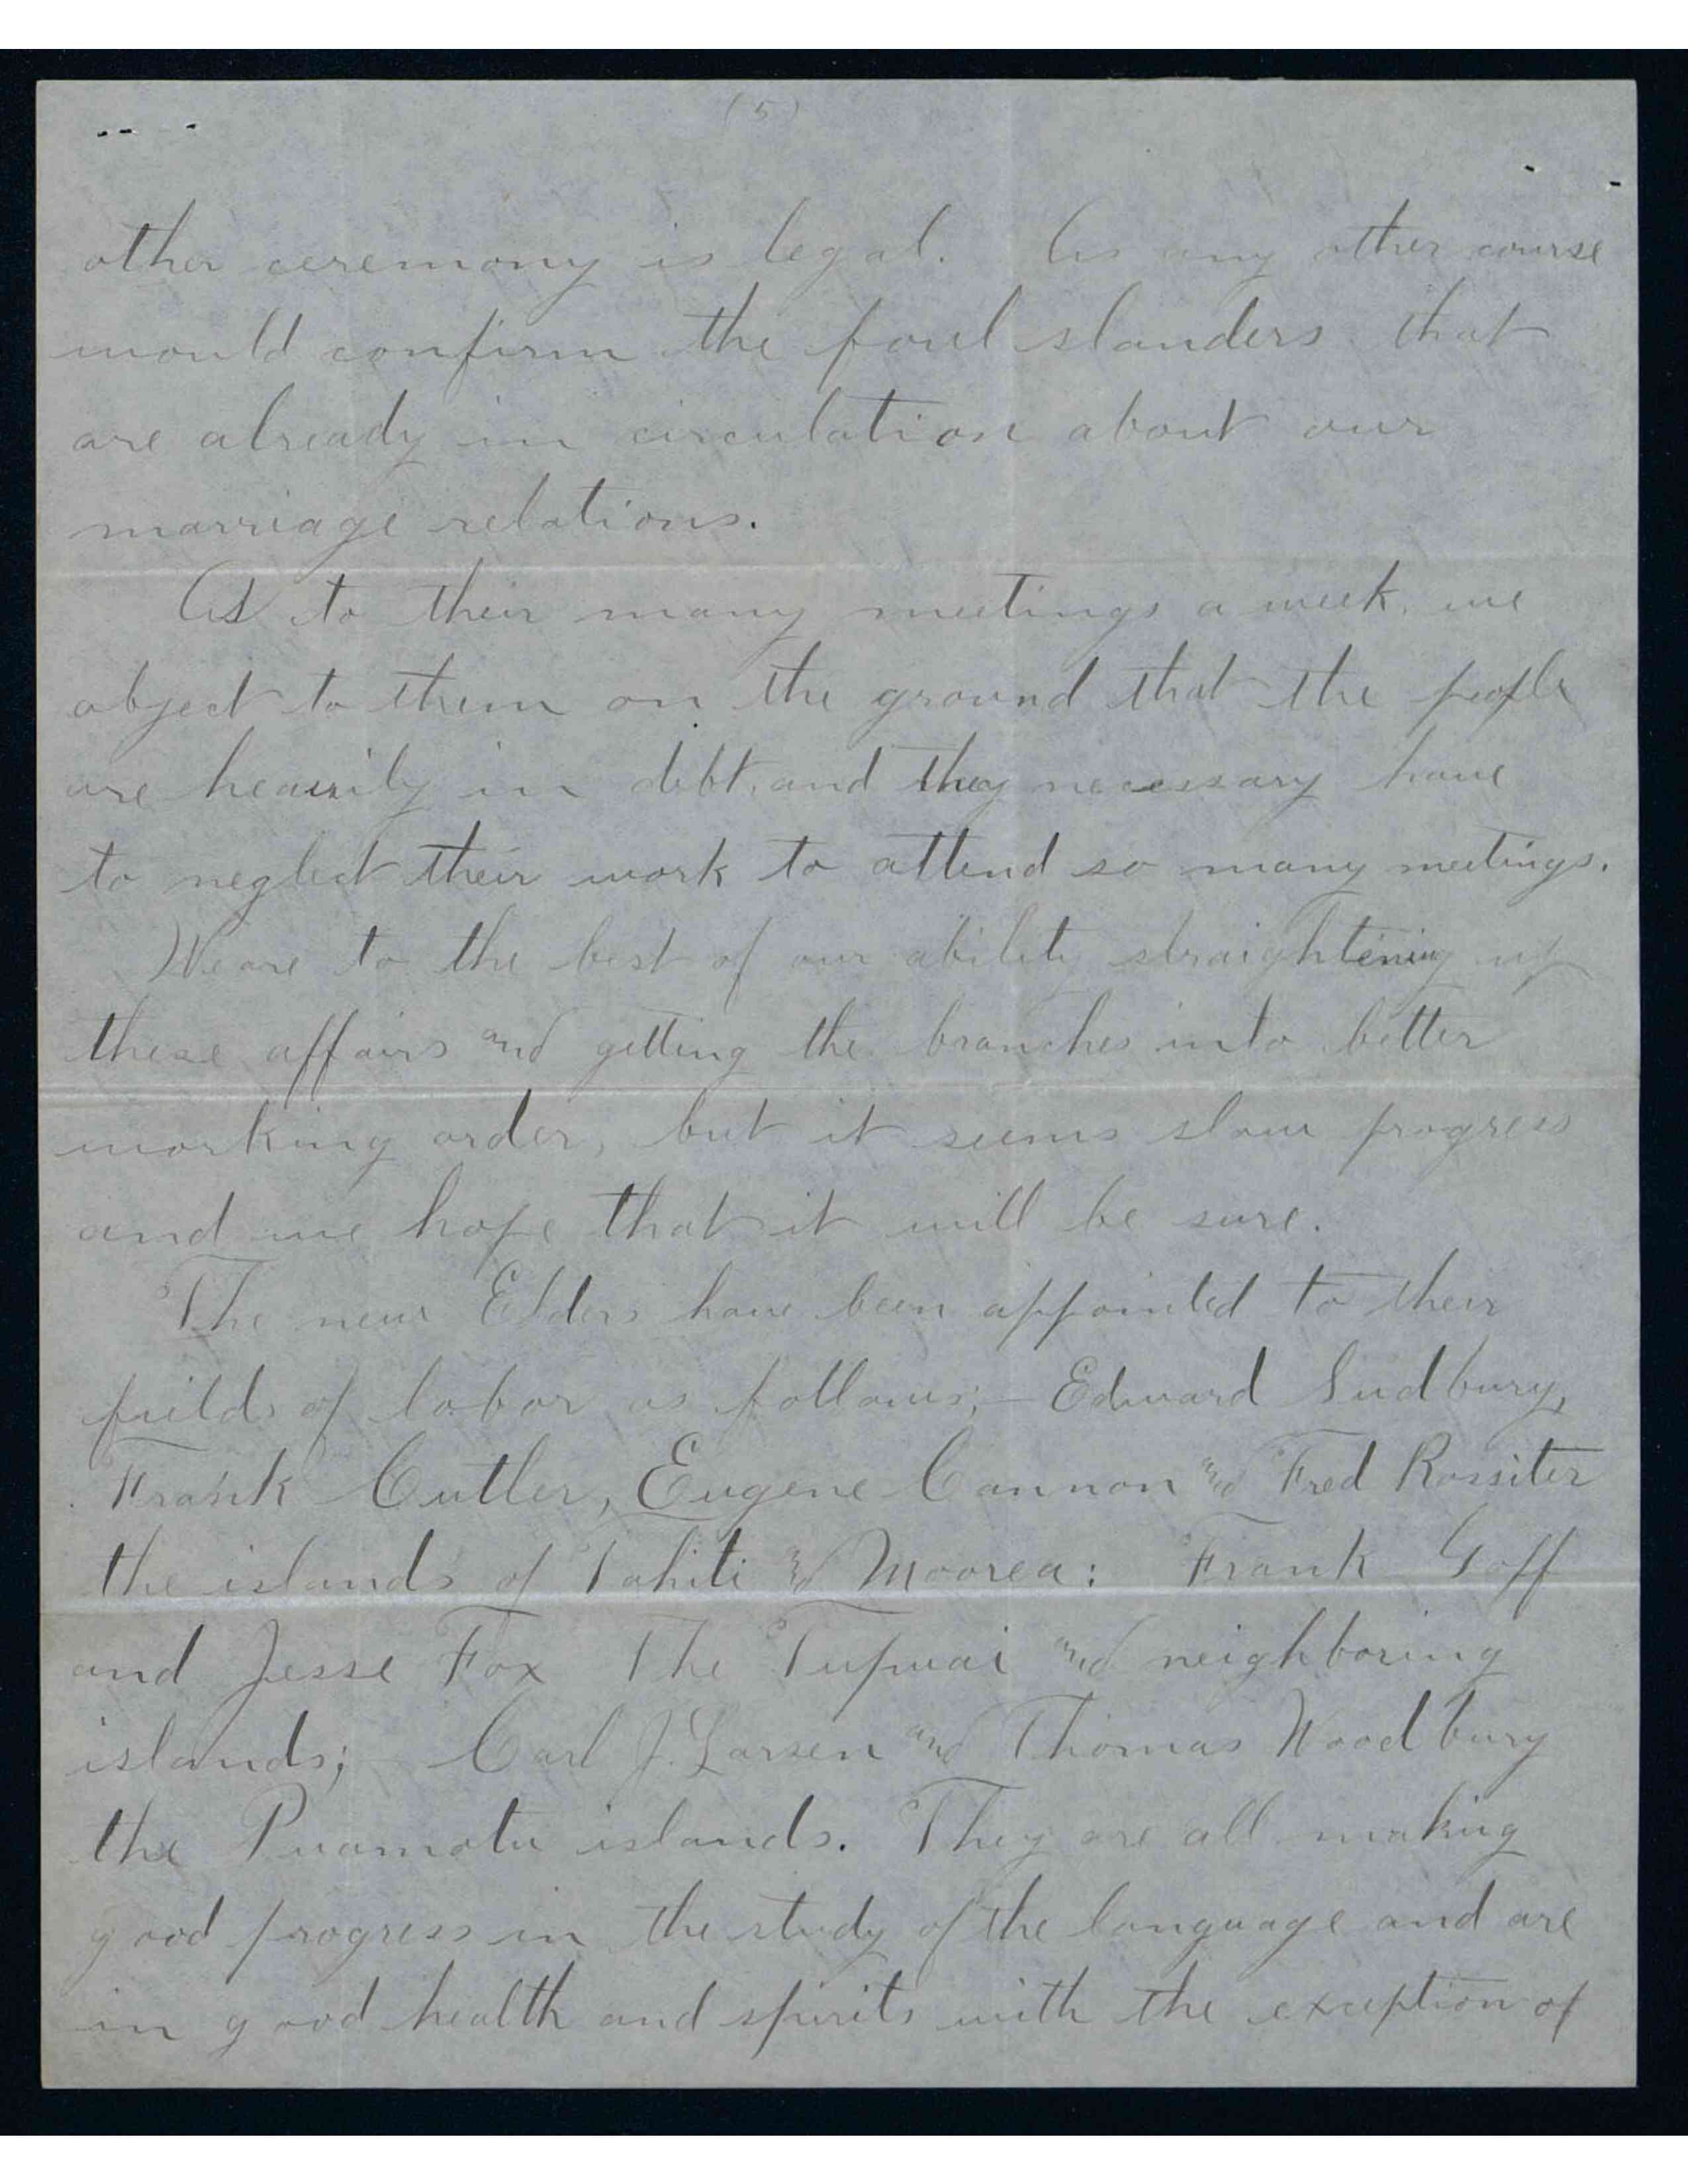 (5)
other ceremony is legal. As any other course
would confirm the foul slanders that
are already in circulation about our
marriage relations.
As to their many meetings a week, we
object to them on the ground that the people
are heavily in debt, and they necessary have
to neglect their work to attend so many meetings.
We are to the best of our ability straightening up
these affairs and getting the branches into better
working order, but it seems slow progress
and we hope that it will be sure.
The new Elders have been appointed to their
feilds of labor as follows;— Edward Sudbury,
Frank Cutler, Eugene Cannon and Fred Rossiter
the islands of Tahiti and Moorea: Frank Goff
and Jesse Fox The Tupuai and neighboring
islands; Carl J. Larsen and Thomas Woodbury
the Puamotu islands. They are all making
good progress in the study of the language and are
in good health and spirits with the exception of